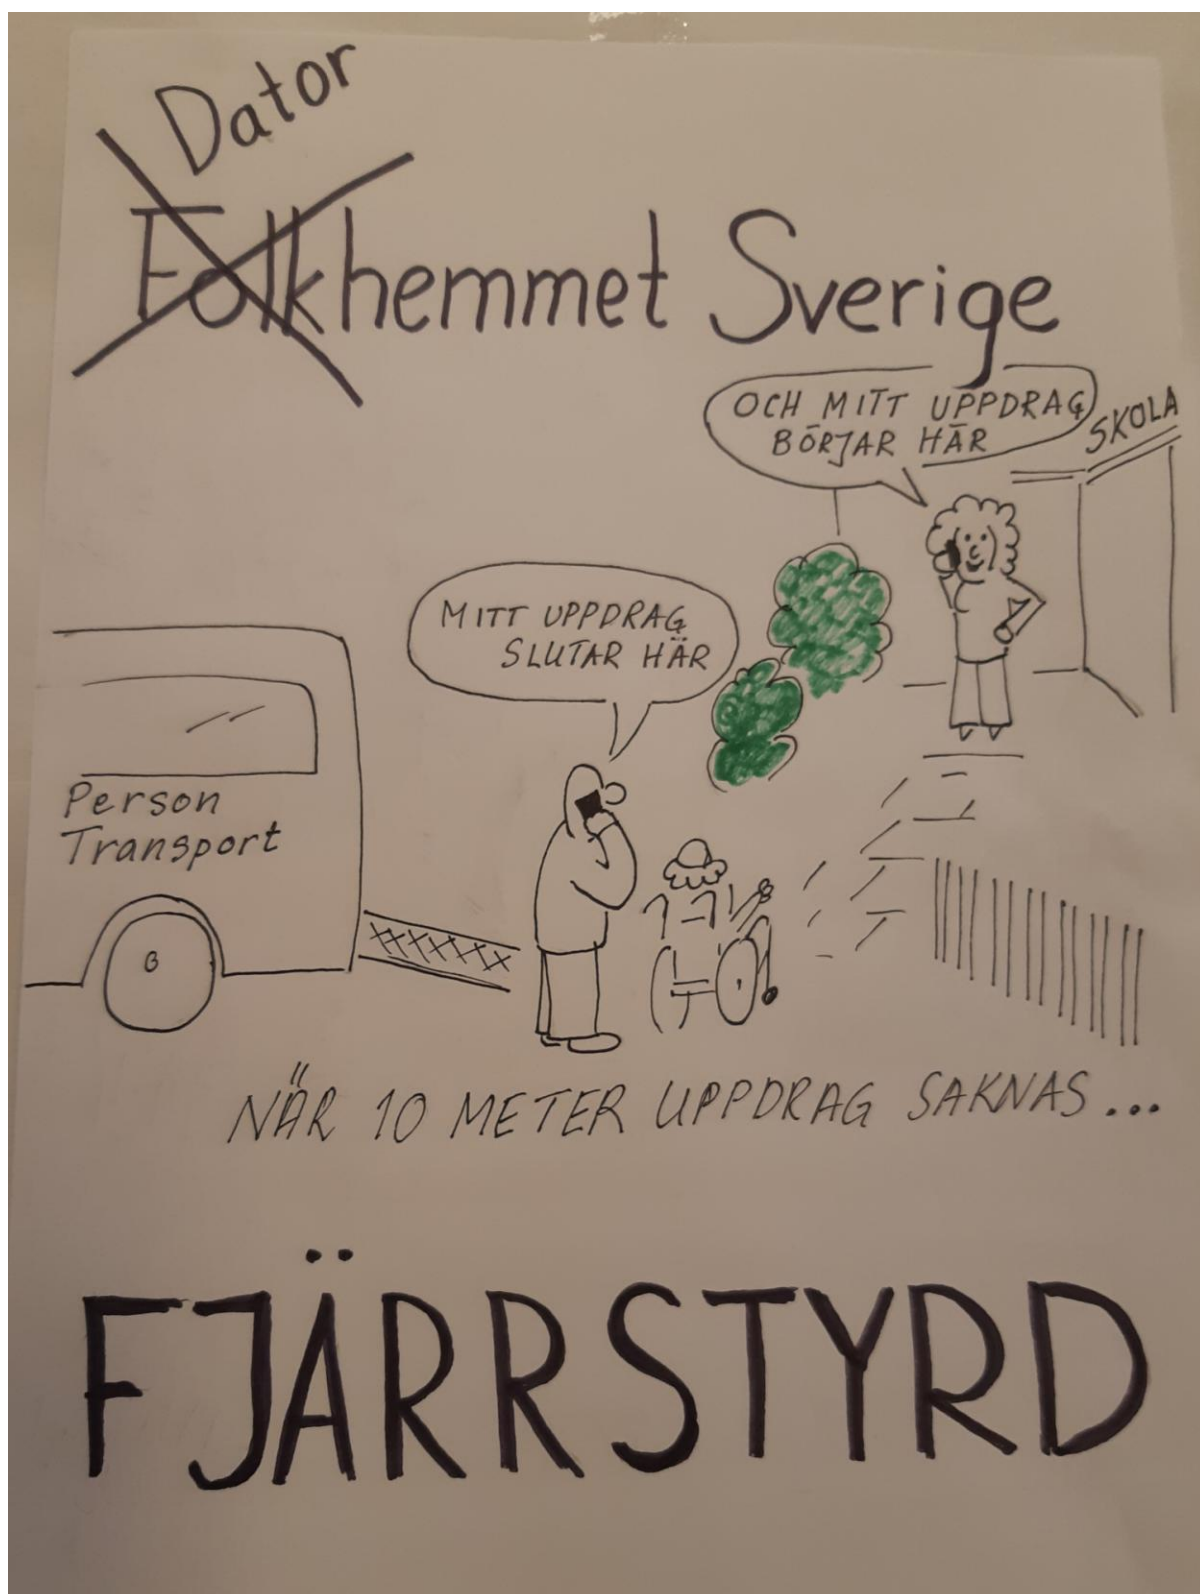 Dator
Folkhemmet Sverige
OCH MITT UPPDRAG
BÖRJAR HÄR
SKOLA
MITT UPPDRAG
SLUTAR HÄR
Person
Transport
NÄR 10 METER UPPDRAG SAKNAS...
FJÄRRSTYRD